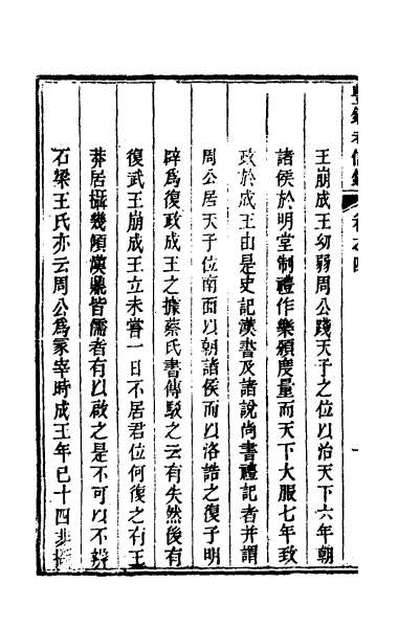 豐鎬考信錄 卷之四 一
王崩成王幼弱周公踐天子之位以治天下六年朝
諸侯於明堂制禮作樂頒度量而天下大服七年致
政於成王由是史記漢書及諸說尚書禮記者并謂
周公居天子位南面以朝諸侯而以洛誥之復子明
辟為復政成王之據蔡氏書傳駁之云有失然後有
復武王崩成王立未嘗一日不居君位何復之有王
莽居攝幾傾漢鼎皆儒者有以啟之是不可以不辨
石梁王氏亦云周公為冢宰時成王年已十四非攝